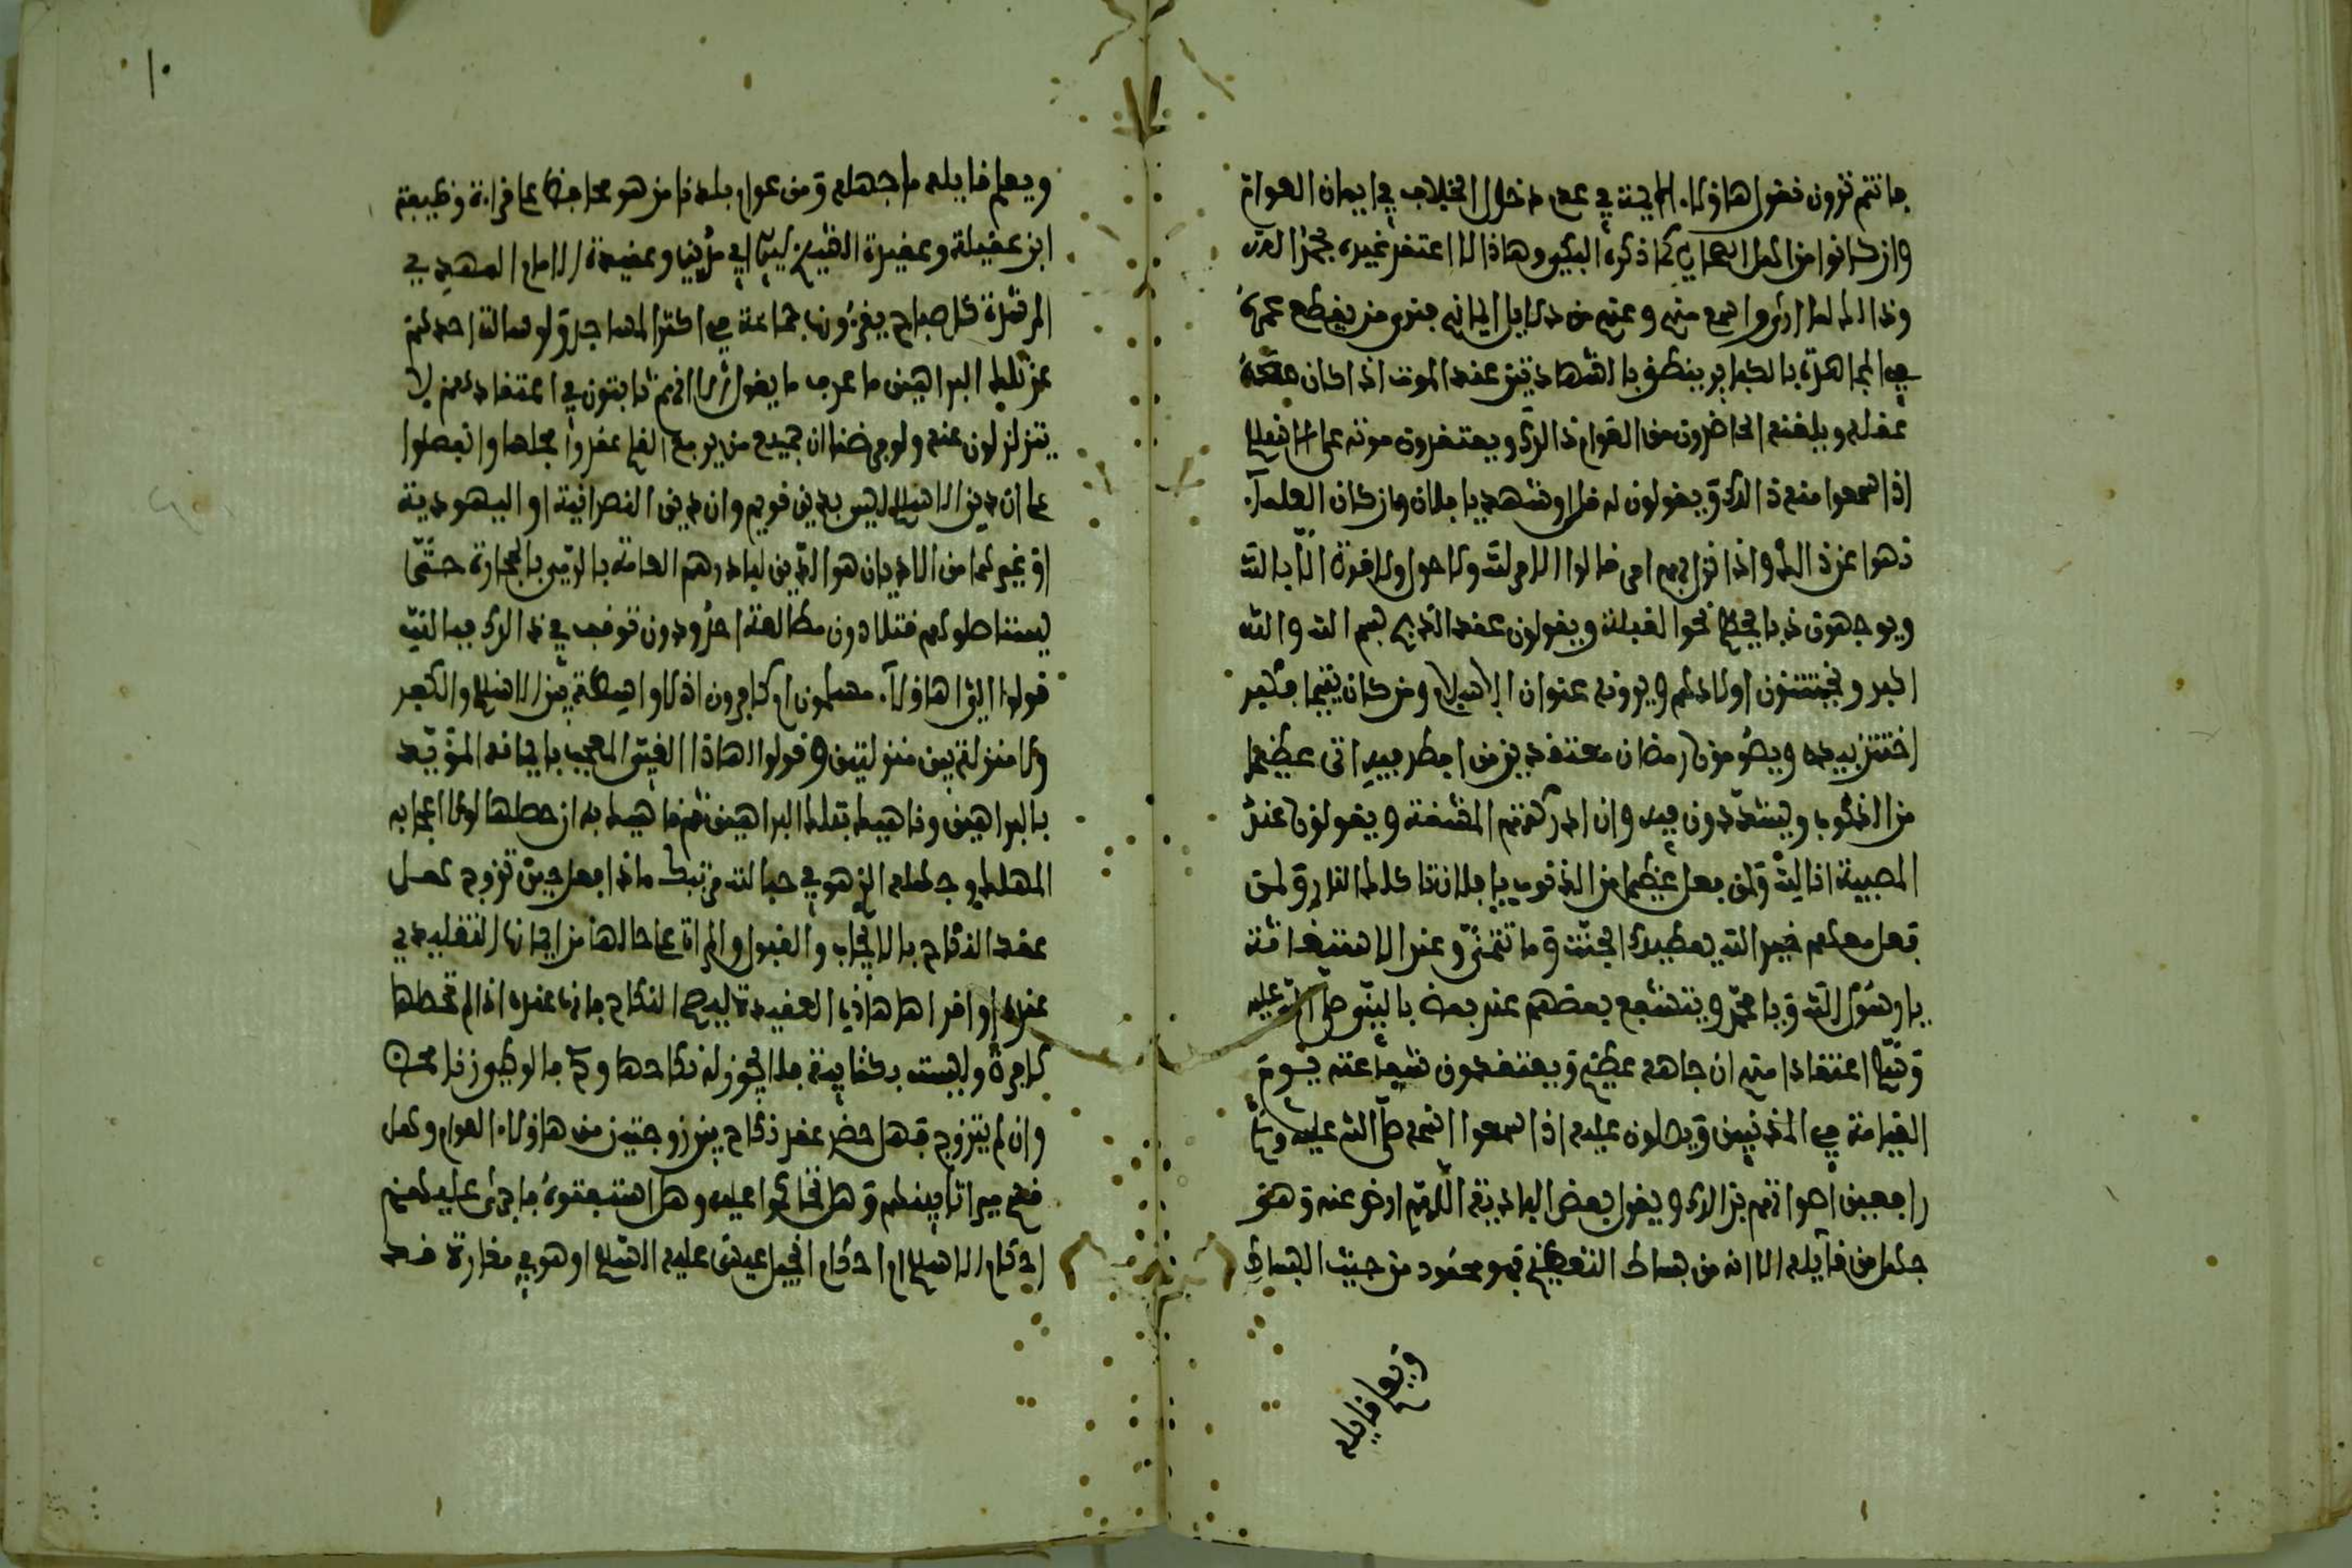 ما نتم ترون فقول هاؤلاء الأيمة في عدم دخول الخلاف في ايمان العوام
وان كانوا من اهل كما ذكره البكي وهاذا لا اعتقد غيره
وذالك لما اراه واسمع منهم وعنهم من دلايل الايمان فترى من يقطع عمره
في المجاهرة بالكباير ينطق بالشهادتين عند الموت اذا كان معه
عقله ويلقنه الحاضرون من العوام ذالك ويعتقدون موته على الاسلام
اذا سمعوا منه ذالك ويقولون له قل اونشهد يا فلان وان كان العلماء
نهوا عن ذالك واذا نزل بهم امر قالوا الامر لله ولا حول ولا قوة الا بالله
ويوجهون ذبايحهم نحو القبلة ويقولون عند الذبح بسم الله والله
اكبر ويختتنون اولادهم ويرونه عنوان الاسلام ومن كان يتيما فكبر
اختتن بيده ويصومون رمضان معتقدين من افطر فيه اتى عظيما
من الذنوب ويشددون فيه وان ادركتهم المشقة ويقولون عند
المصيبة انا لله ولمن فعل عظيما من الذنوب يا فلان تاكلك النار ولمن
فعل معهم خيرا الله يعطيك الجنة وما تتمنى وعند الاستغاثة
يا رسول الله ويا محمد ويتشفع بعضهم عند بعض بالنبي صلى الله عليه
وسلم اعتقادا منهم ان جاهه عظيم ويعتقدون شفاعته يوم
القيامة في المذنبين ويصلون عليه اذا سمعوا اسمه صلى الله عليه وسلم
رافعين اصواتهم بذالك ويقول بعض البادية اللهم ارض عنه وهو
جهل من قايله الا انه من بساط التعظيم فهو محمود من حيث البساط
ويعلم قايله
١٠
ويعلم قايله ما جهله ومن عوام بلدنا من هو محافظ على قراءة وظيفة
ابن عقيلة وعقيدة الشيخ سيدي ابي مدين وعقيدة الامام المهدي
المرشدة كل صباح يقرءونها جماعة في اكثر المساجد ولو سالت احدهم
عن تلك البراهين ما عرف ما يقول الا انهم ثابتون في اعتقادهم لا
يتزلزلون عنه ولو فرضنا ان جميع من يرفع القلم عقدوا مجلسا وانفصلوا
على ان دين الاسلام ليس بدين قويم وان دين النصرانية او اليهودية
او غيرهما من الاديان هو الدين لبادرهم العامة بالرمي بالحجارة حتى
يستاصلوهم قتلا دون مطالعة احد ودون توقف في ذالك فبالله
قولوا الي اهاؤلاء مسلمون او كافرون اذ لا واسطة بين الاسلام والكفر
ولا منزلة بين منزلتين وقولوا لهاذا الفتى المعجب بايمانه المؤيد
بالبراهين وناهيك بتلك البراهين ثم ناهيك به ان حصلها لولا اعجابه
المهلك وجهله الذي هو في حباله مرتبك ماذا فعل حين تزوج هل
عقد النكاح بالايجاب والقبول والمراة على حالها من ايمانها التقليدي
عنده او اقراها هاذي العقيدة ليصح النكاح فانها عنده اذا لم تحصلها
كافرة وليست بكتابية فلا يجوز له نكاحها
وان لم يتزوج فهل حضر عقد نكاح بين زوجين من هاؤلاء العوام وهل
قسم ميراثا بينهم وهل تحاكموا عليه وهل استفتوه فاجرى عليهم
احكام الاسلام او احكام انجيل عيسى عليه السلام او هو في مغارة قد